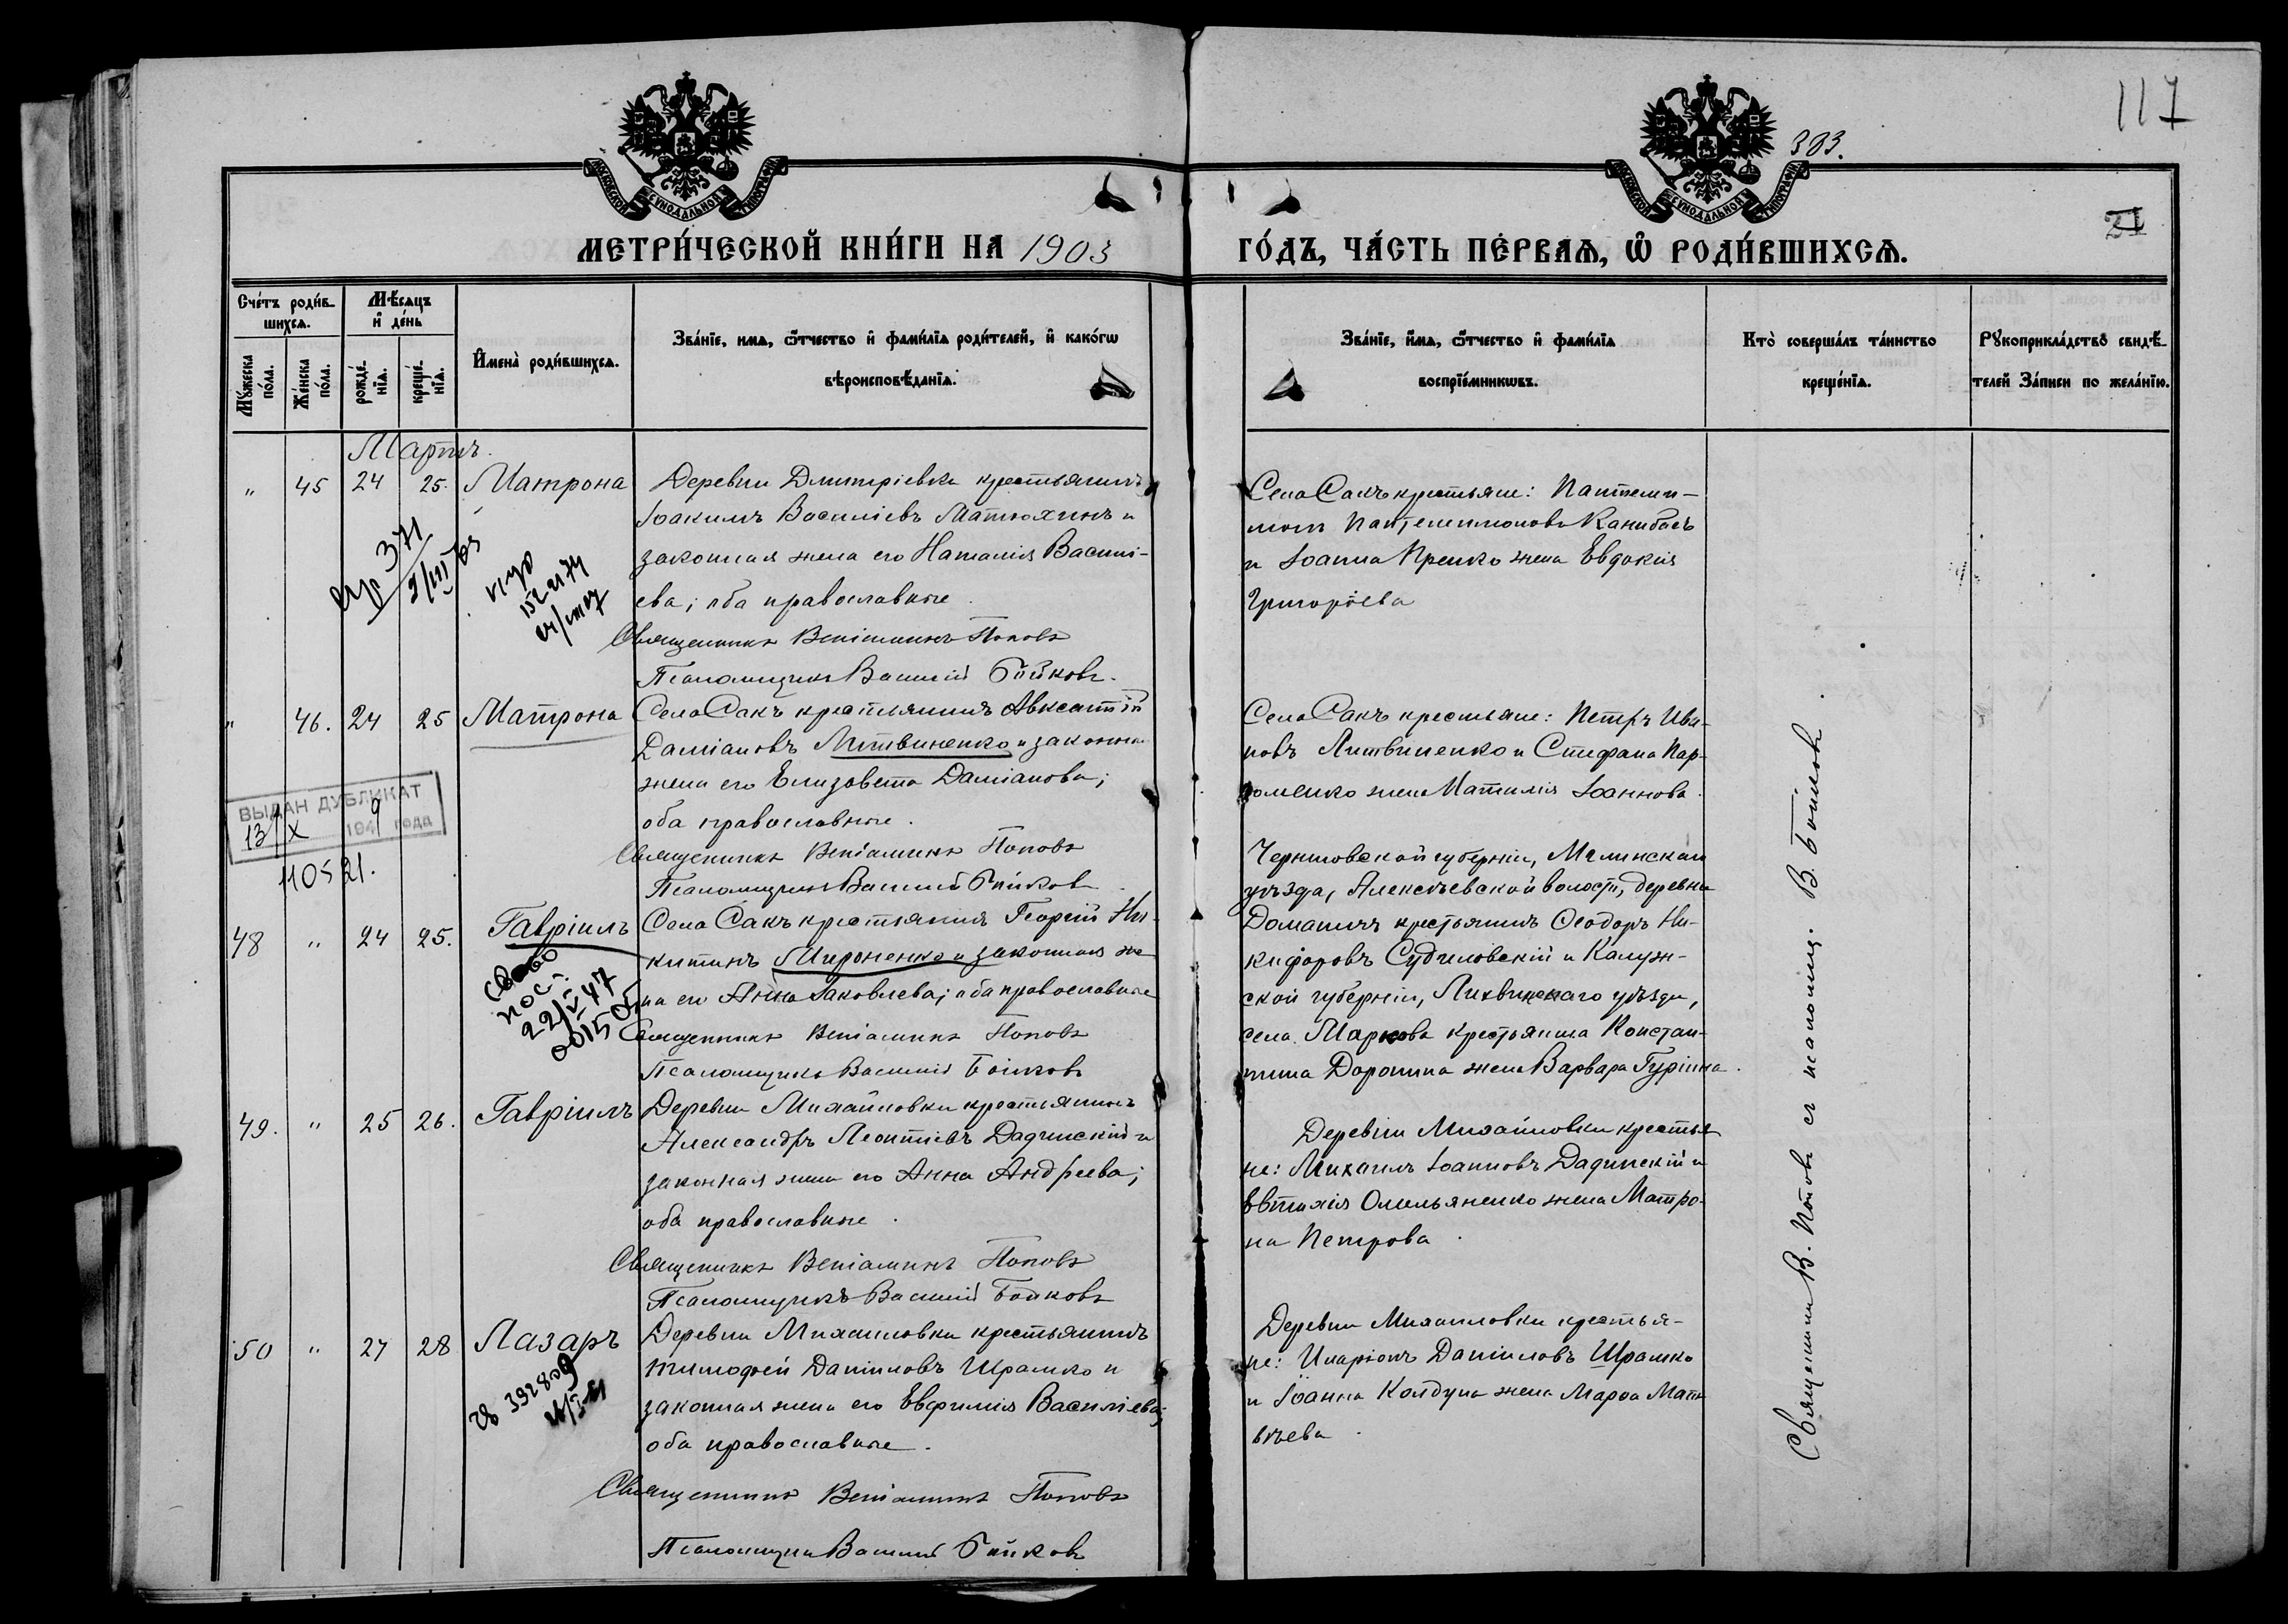 117
303.
МОСКОВСКОЙ СѴНОДАЛЬНОЙ ТИПОГРАФІИ
МОСКОВСКОЙ СѴНОДАЛЬНОЙ ТИПОГРАФІИ
МЕТРИ́ЧЕСКОЙ КНИ́ГИ НА 1903 ГО́ДЪ, ЧА́СТЬ ПЕ́РВАѦ, Ѡ҆ РОДИ́ВШИХСѦ.
Сче́тъ роди́в-
шихсѧ.
Мꙋ́жеска по́ла.
Же́нска по́ла.
Мѣ́сѧцъ
и҆ де́нь
рожде́-
нїѧ.
креще́-
нїѧ.
И҆мена̀ роди́вшихсѧ.
Зва́нїе, имѧ, ѻ҆́тчество и҆ фами́лїѧ роди́телей, и҆ како́гѡ
вѣроисповѣ́данїѧ.
Зва́нїе, и҆́мѧ, ѻ҆́тчество и҆ фами́лїѧ
воспрїе́мникѡвъ.
Кто̀ соверша́лъ та́инство
креще́нїѧ.
Рꙋкоприкла́дство свидѣ́-
телей За́писи по жела́нїю.
Мартъ.
" 45 24 25. Матрона
Деревни Дмитріевки крестьянинъ
Іоакимъ Василіевъ Матюхинъ и
законная жена его Наталія Васили-
ева; оба православные.
Священникъ Веніаминъ Поповъ
Псаломщикъ Василій Бойковъ.
Села Сакъ крестьяне: Пантели-
монъ Пантелимоновъ Канибасъ
и Іоанна Яренко жена Евдокия
Григоріева
" 46. 24 25 Матрона
Села Сакъ крестьянинъ Авксентій
Даміановъ Литвиненко и законная
жена его Елизавета Даміанова;
оба православные.
Священникъ Веніаминъ Поповъ
Псаломщикъ Василій Бойковъ
Села Сакъ крестьяне: Петръ Ива-
новъ Литвиненко и Стефана Пар-
хоменко жена Наталія Іоаннова.
ВЫДАН ДУБЛИКАТ
13/X 1949 года
110521.
48 " 24 25. Гавріилъ
Села Сакъ крестьянинъ Георгій Ни-
китинъ Мироненко и законная же-
на его Анна Яковлева; оба православные
Священникъ Веніаминъ Поповъ
Псаломщикъ Василій Бойковъ
Черниговской губерніи, Мглинскаго
уѣзда, Алексѣевской волости, деревни
Доманичъ крестьянинъ Ѳеодоръ Ни-
кифоровъ Судиловскій и Калуж-
ской губерніи, Лихвинскаго уѣзда,
села Маркова крестьянина Констан-
тина Доронина жена Варвара Гуріина.
49. " 25 26. Гавріилъ
Деревни Михайловки крестьянинъ
Александръ Леонтіевъ Дадинскій и
законная жена его Анна Андреева;
оба православные.
Священникъ Веніаминъ Поповъ
Псаломщикъ Василій Бойковъ
Деревни Михайловки крестья-
не: Михаилъ Іоанновъ Дадинскій и
Евтихія Омельяненко жена Матро-
на Петрова.
50 " 27 28 Лазаръ
Деревни Михайловки крестьянинъ
Тимофей Даніиловъ Шрамко и
законная жена его Евфимія Василіева;
оба православные.
Священникъ Веніаминъ Поповъ
Псаломщикъ Василій Бойковъ
Деревни Михайловки крестья-
не: Иларіонъ Даниловъ Шрамко
и Іоанна Колдуна жена Марѳа Мат-
вѣева.
Священникъ В. Поповъ съ псаломщ. В. Бойковъ.